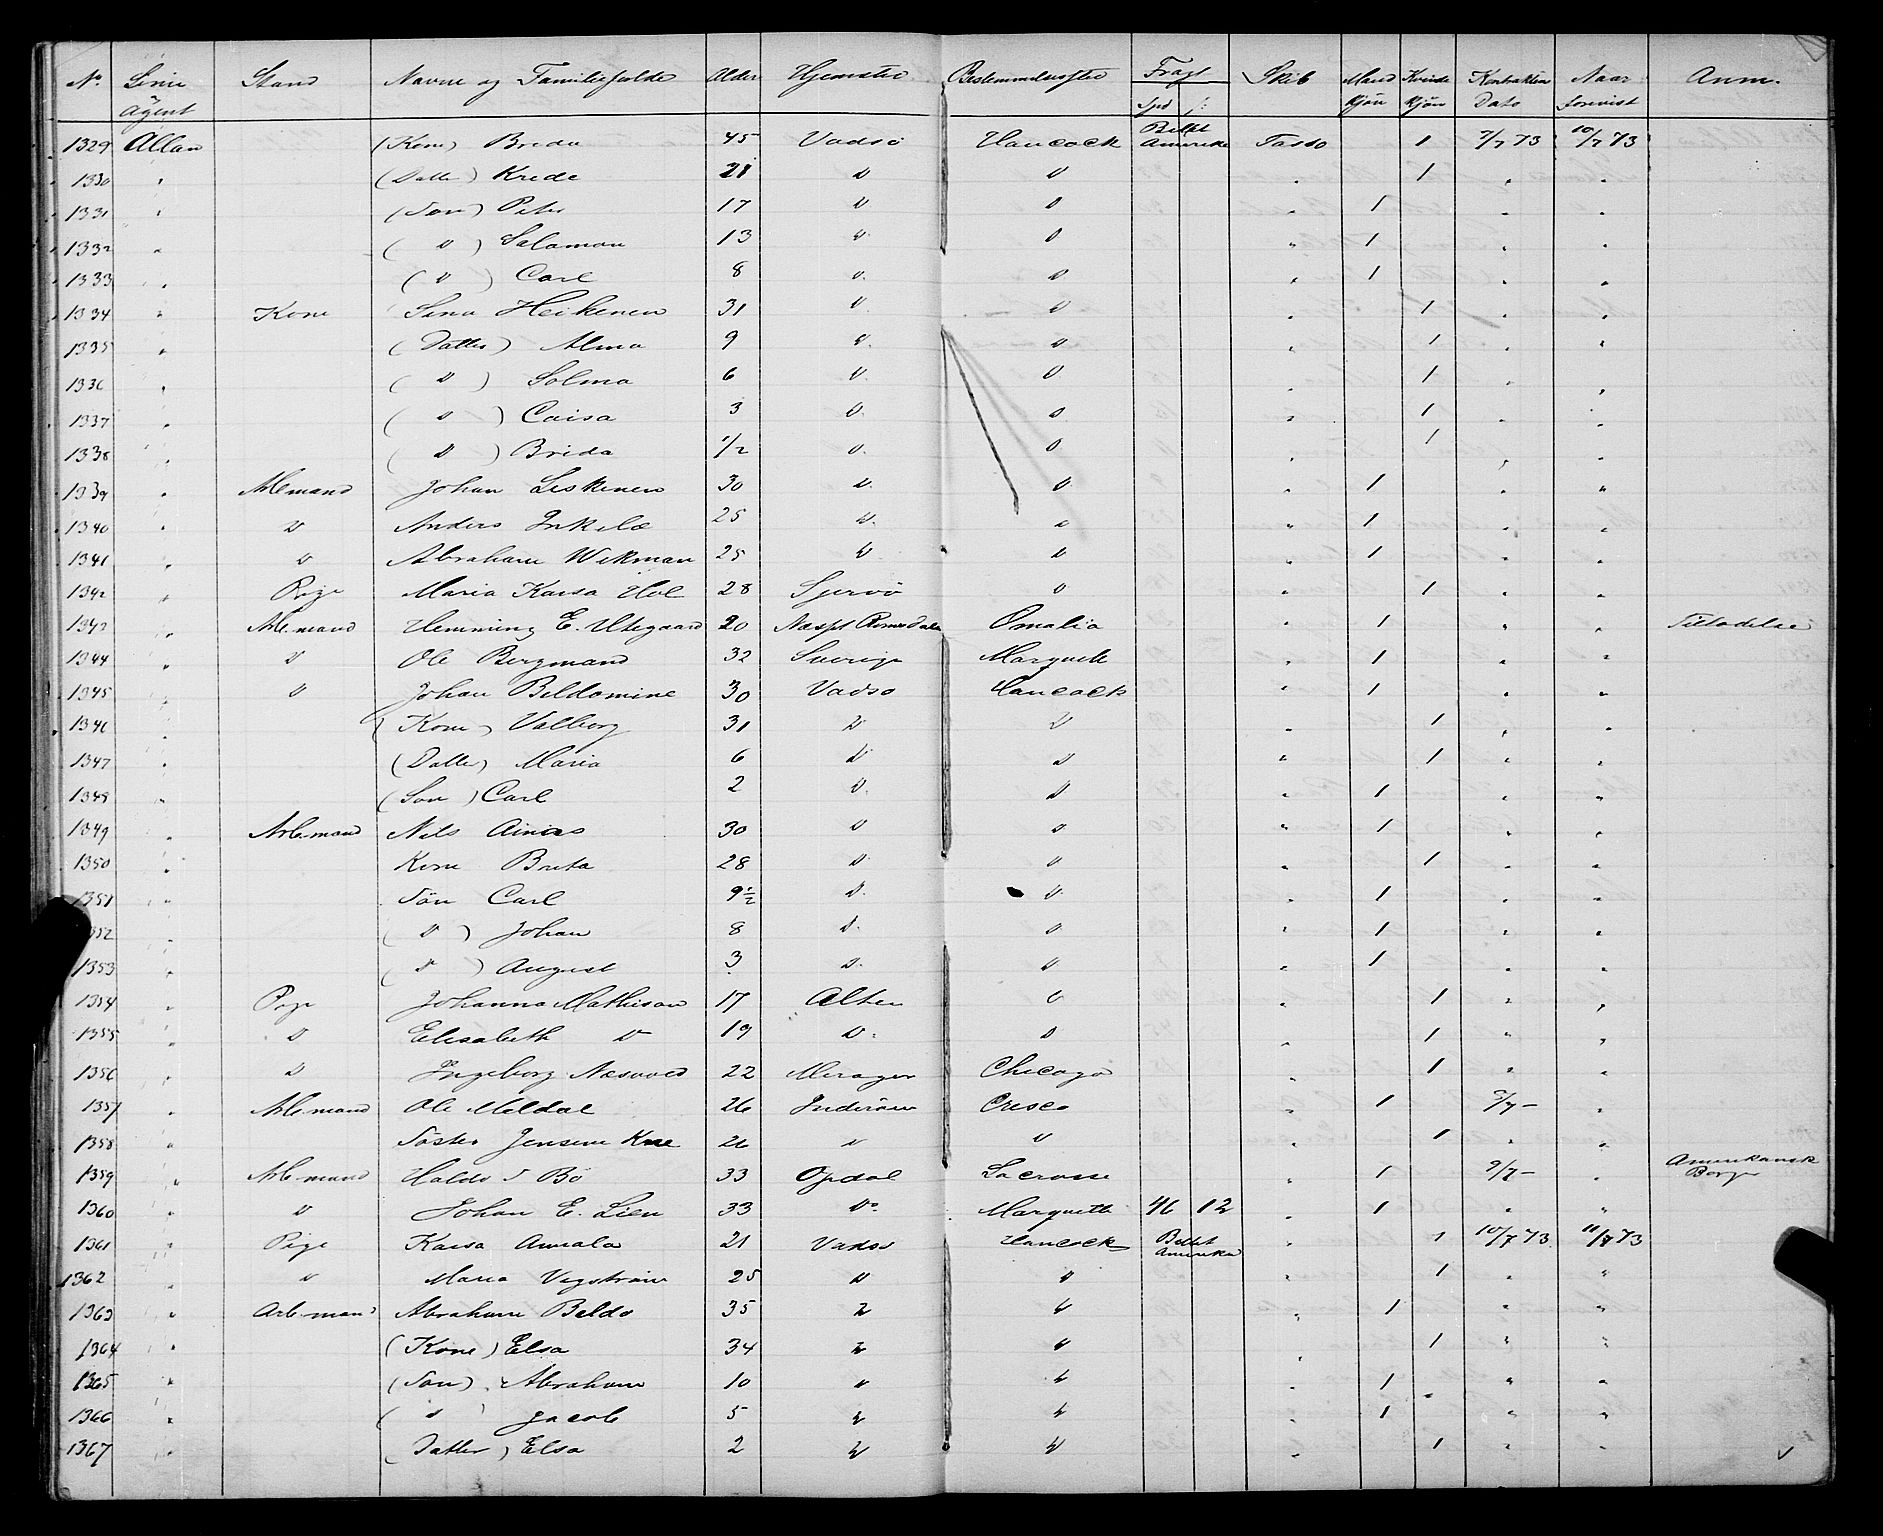 No Linie Agent Stand Navne og Familieforhold Alder Hjemsted Bestemmelsessted Fragt Spd ß Skib Mand kjøn Kvinde kjøn Kontraktens Dato Naar forevist Anm.
1329 Allan (Kone) Breda 45 Vadsö Hancock Billet Amerika Tasso 1 7/7 73 10/7 73
1330 " (Datter) Krede 21 D D " 1 " "
1331 " (Sön) Peter 17 D D " 1 " "
1332 " ( D ) Salamon 13 D D " 1 " "
1333 " ( D ) Carl 8 D D " 1 " "
1334 " Kone Sina Heikenen 31 D D " 1 " "
1335 " (Datter) Alma 9 D D " 1 " "
1336 " ( D ) Solma 6 D D " 1 " "
1337 " ( D ) Caisa 3 D D " 1 " "
1338 " ( D ) Brida 1/2 D D " 1 " "
1339 " Arb.mand Johan Leskenen 30 D D " 1 " "
1340 " D Anders Inkelæ 25 D D " 1 " "
1341 " D Abraham Wekman 25 D D " 1 " "
1342 " Pige Maria Kaisa Hol 28 Sjervö D " 1 " "
1343 " Arb.mand Hemming E. Utegaard 20 Næspt Romsdalen Omalia " 1 " " Tilladelse
1344 " D Ole Bergmand 32 Sverige Marquete " 1 " "
1345 " D Johan Beldamine 30 Vadsö Hancock " 1 " "
1346 " (Kone) Valborg 31 D D " 1 " "
1347 " (Datter) Maria 6 D D " 1 " "
1348 " (Sön) Carl 2 D D " 1 " "
1349 " Arb.mand Nils Ainias 30 D D " 1 " "
1350 " Kone Breta 28 D D " 1 " "
1351 " Sön Carl 9 1/2 D D " 1 " "
1352 " ( D ) Johan 8 D D " 1 " "
1353 " ( D ) August 3 D D " 1 " "
1354 " Pige Johanna Mathisen 17 Alten D " 1 " "
1355 " D Elisabeth D 19 D D " 1 " "
1356 " D Ingeborg Næsvold 22 Merager Chicago " 1 " "
1357 " Arb.mand Ole Meldal 26 Inderöen Cresco " 1 7/7 – "
1358 " Söster Jensine 26 D D " 1 " "
1359 " Arb.mand Haldo J Bö 33 Opdal Lacrosse " 1 9/7 – " Amerikansk Borger
1360 " D Johan E. Lien 33 Do Marquette 46 12 " 1 " "
1361 " Pige Kaisa Annala 21 Vadsö Hancock Billet Amerika " 1 10/7 73 11/7 73
1362 " D Maria Vegström 25 D D " 1 " "
1363 " Arb.mand Abraham Beldo 35 D D " 1 " "
1364 " (Kone) Elsa 34 D D " 1 " "
1365 " (Sön) Abraham 10 D D " 1 " "
1366 " ( D ) Jacob 5 D D " 1 " "
1367 " (Datter) Elsa 2 D D " 1 " "